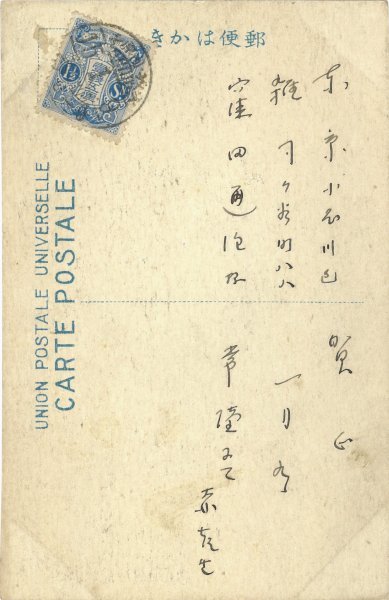 郵便はかき
東京小石川区
雑司ヶ谷町八八
窪田通治様
賀正
一月
常陸にて
UNION POSTALE UNIVERSELLE
CARTE POSTALE
1½
Sn